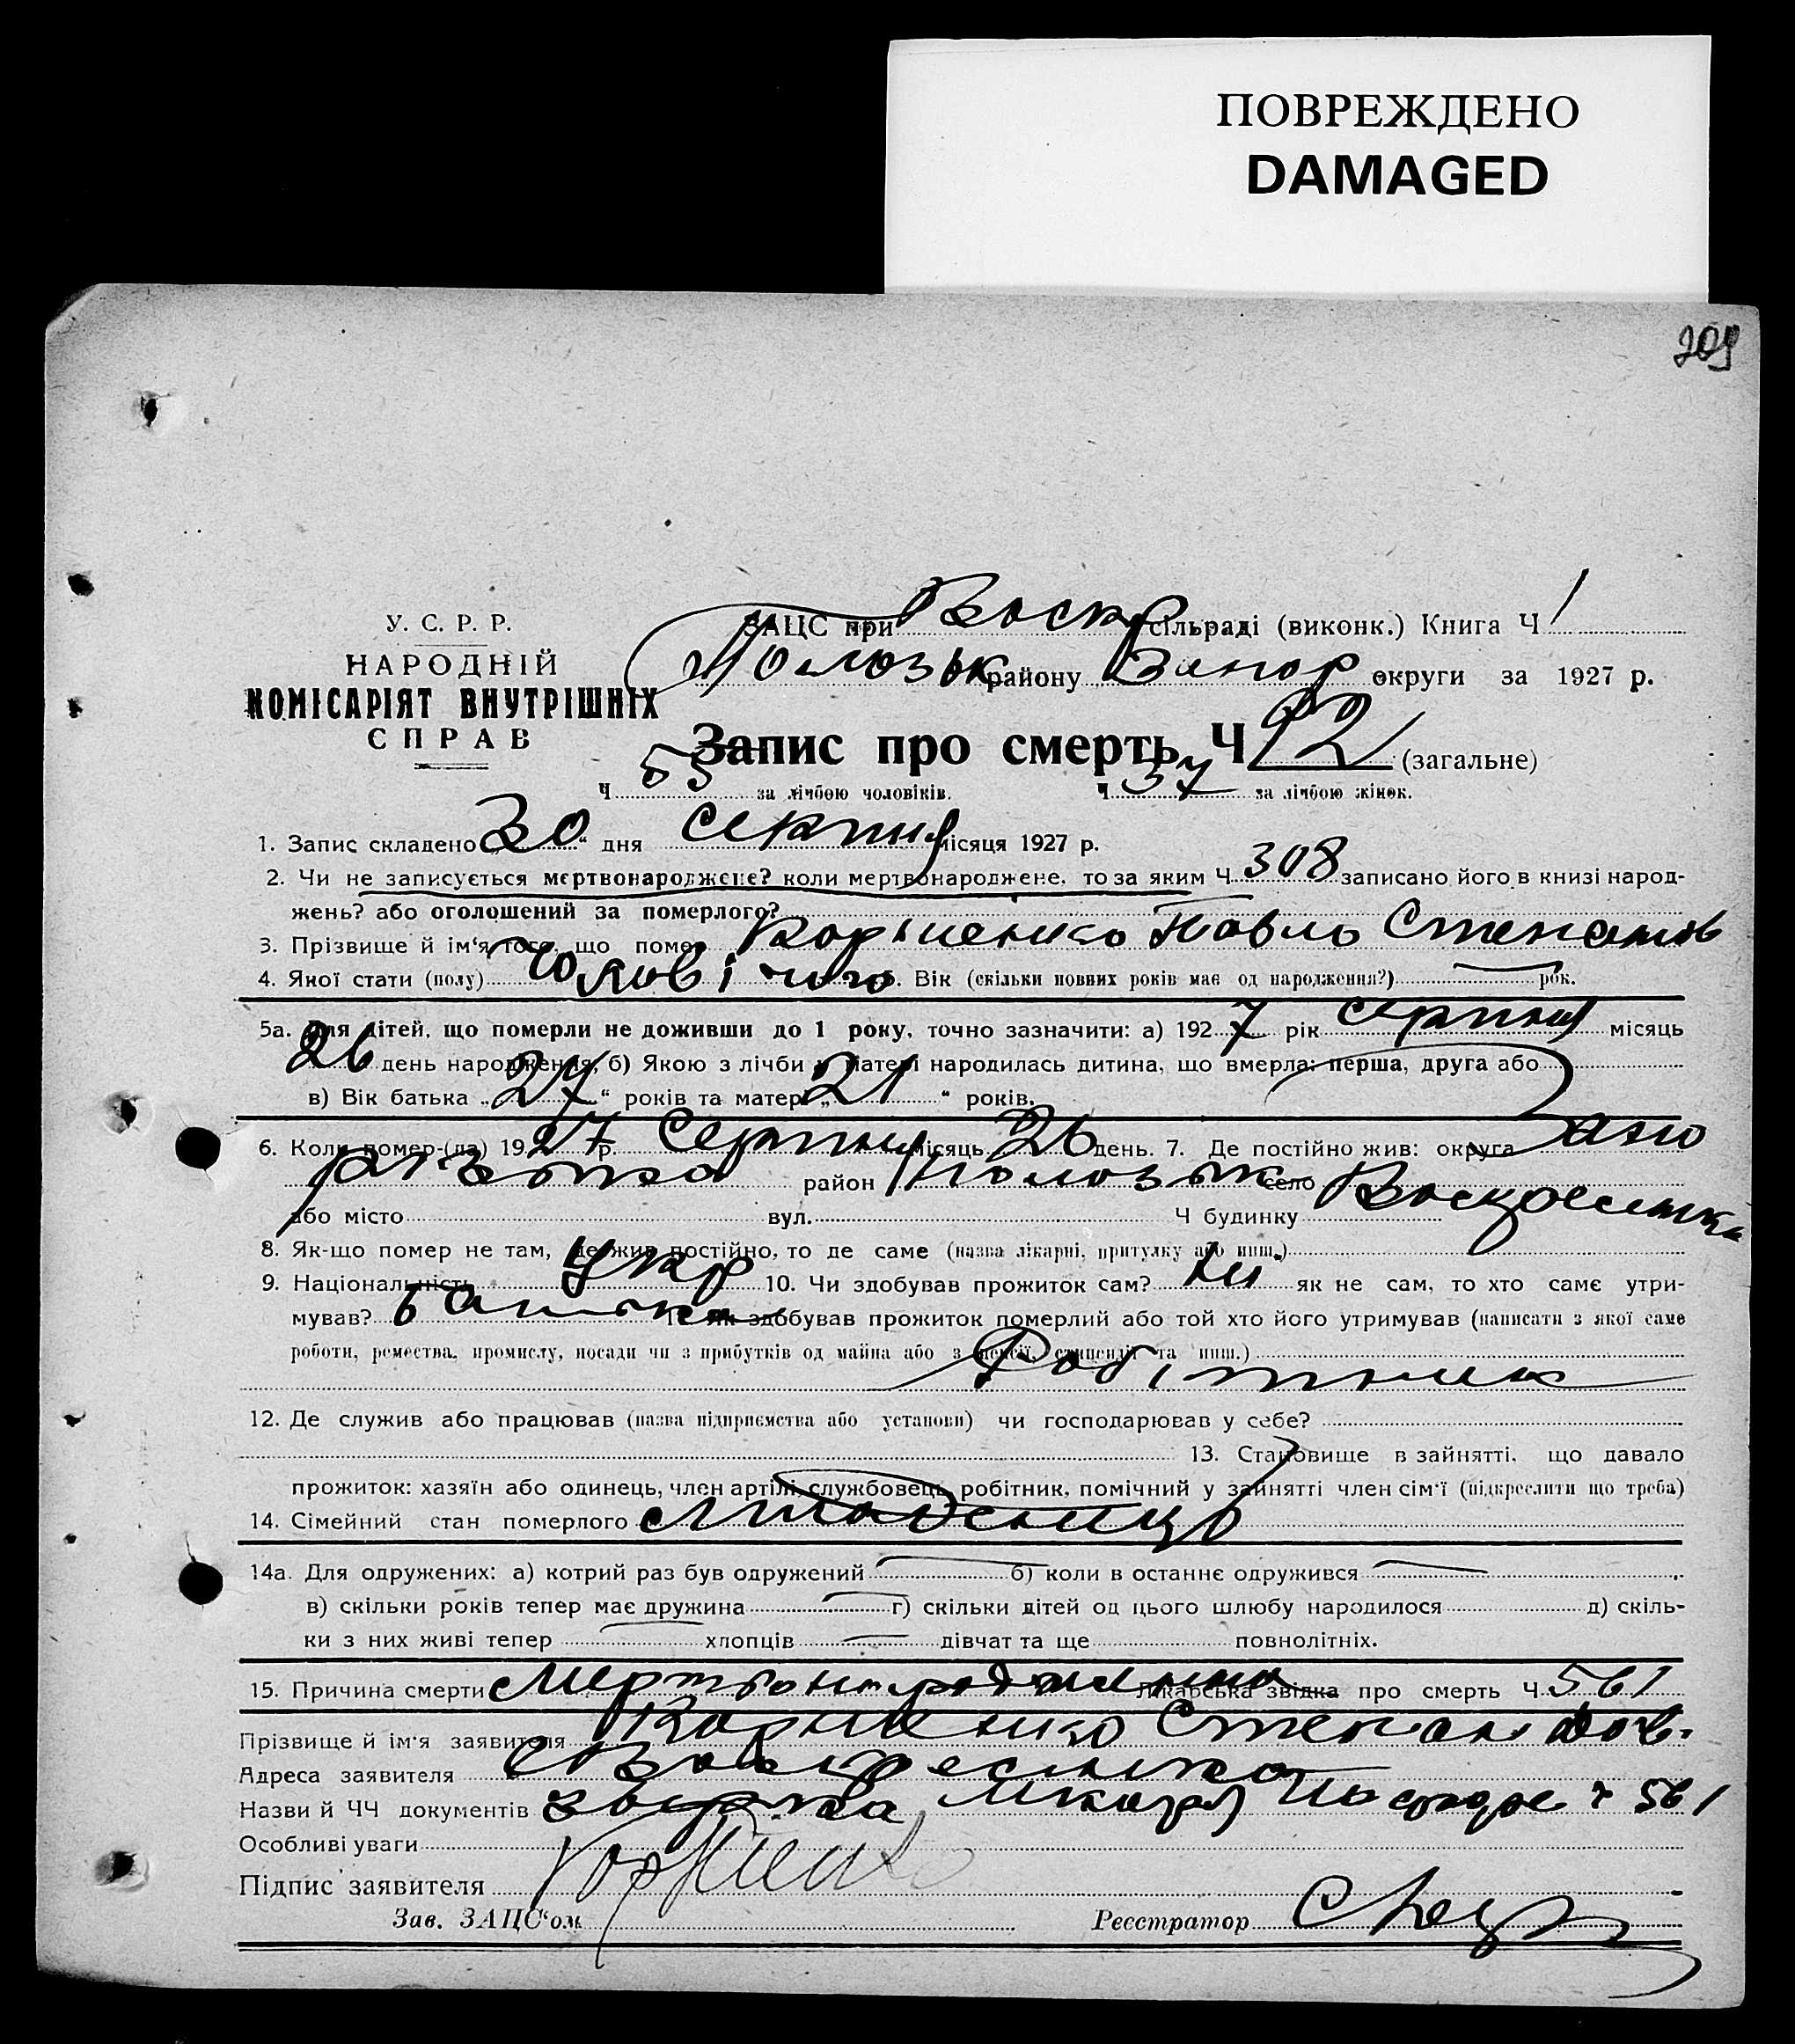 ПОВРЕЖДЕНО
DAMAGED
209
У. С. Р. Р.
НАРОДНІЙ
КОМІСАРІЯТ ВНУТРІШНІХ
СПРАВ
ЗАЦС при Воскр сільраді (виконк.) Книга Ч 1
Пологзьк району Запор округи за 1927 р.
Запис про смерть Ч 92 (загальне)
Ч 55 за лічбою чоловіків. Ч 37 за лічбою жінок.
1. Запис складено „30“ дня Серпня місяця 1927 р.
2. Чи не записується мертвонароджене? коли мертвонароджене, то за яким Ч 308 записано його в книзі народ-
жень? або оголошений за померлого?
3. Прізвище й ім‘я того, що помер Корниенко Павло Степанов
4. Якої стати (полу) Чоловічого 5. Вік (скільки повних років має од народження?) — рок.
5а. Для дітей, що померли не доживши до 1 року, точно зазначити: а) 1927 рік Серпня місяць
26 день народження, б) Якою з лічби у матері народилась дитина, що вмерла: перша, друга або
в) Вік батька „27“ років та матері „21“ років.
6. Коли помер-(ла) 1927 р. Серпня місяць 26 день. 7. Де постійно жив: округа
район село Воскресенка
або місто вул. Ч будинку
8. Як-що помер не там, де жив постійно, то де саме (назва лікарні, притулку або инш.)
9. Національність Укр 10. Чи здобував прожиток сам? ні як не сам, то хто саме утри-
мував? батька 11. Як здобував прожиток померлий або той хто його утримував (написати з якої саме
роботи, ремества, промислу, посади чи з прибутків од майна або з пенсії, стипендії та инш.)
Робітник
12. Де служив або працював (назва підприємства або установи) чи господарював у себе?
13. Становище в зайнятті, що давало
прожиток: хазяїн або одинець, член артілі, службовець, робітник, помічний у зайнятті член сім‘ї (підкреслити що треба)
14. Сімейний стан померлого Младенець
14а. Для одружених: а) котрий раз був одружений — б) коли в останнє одружився —
в) скільки років тепер має дружина — г) скільки дітей од цього шлюбу народилося д) скіль-
ки з них живі тепер — хлопців — дівчат та ще повнолітніх.
15. Причина смерти Лікарська звідка про смерть Ч 561
Прізвище й ім‘я заявителя Корниенко Степан
Адреса заявителя Воскресенка
Назви й ЧЧ документів ч 561
Особливі уваги
Підпис заявителя Корниенко
Зав. ЗАЦС‘ом Реєстратор